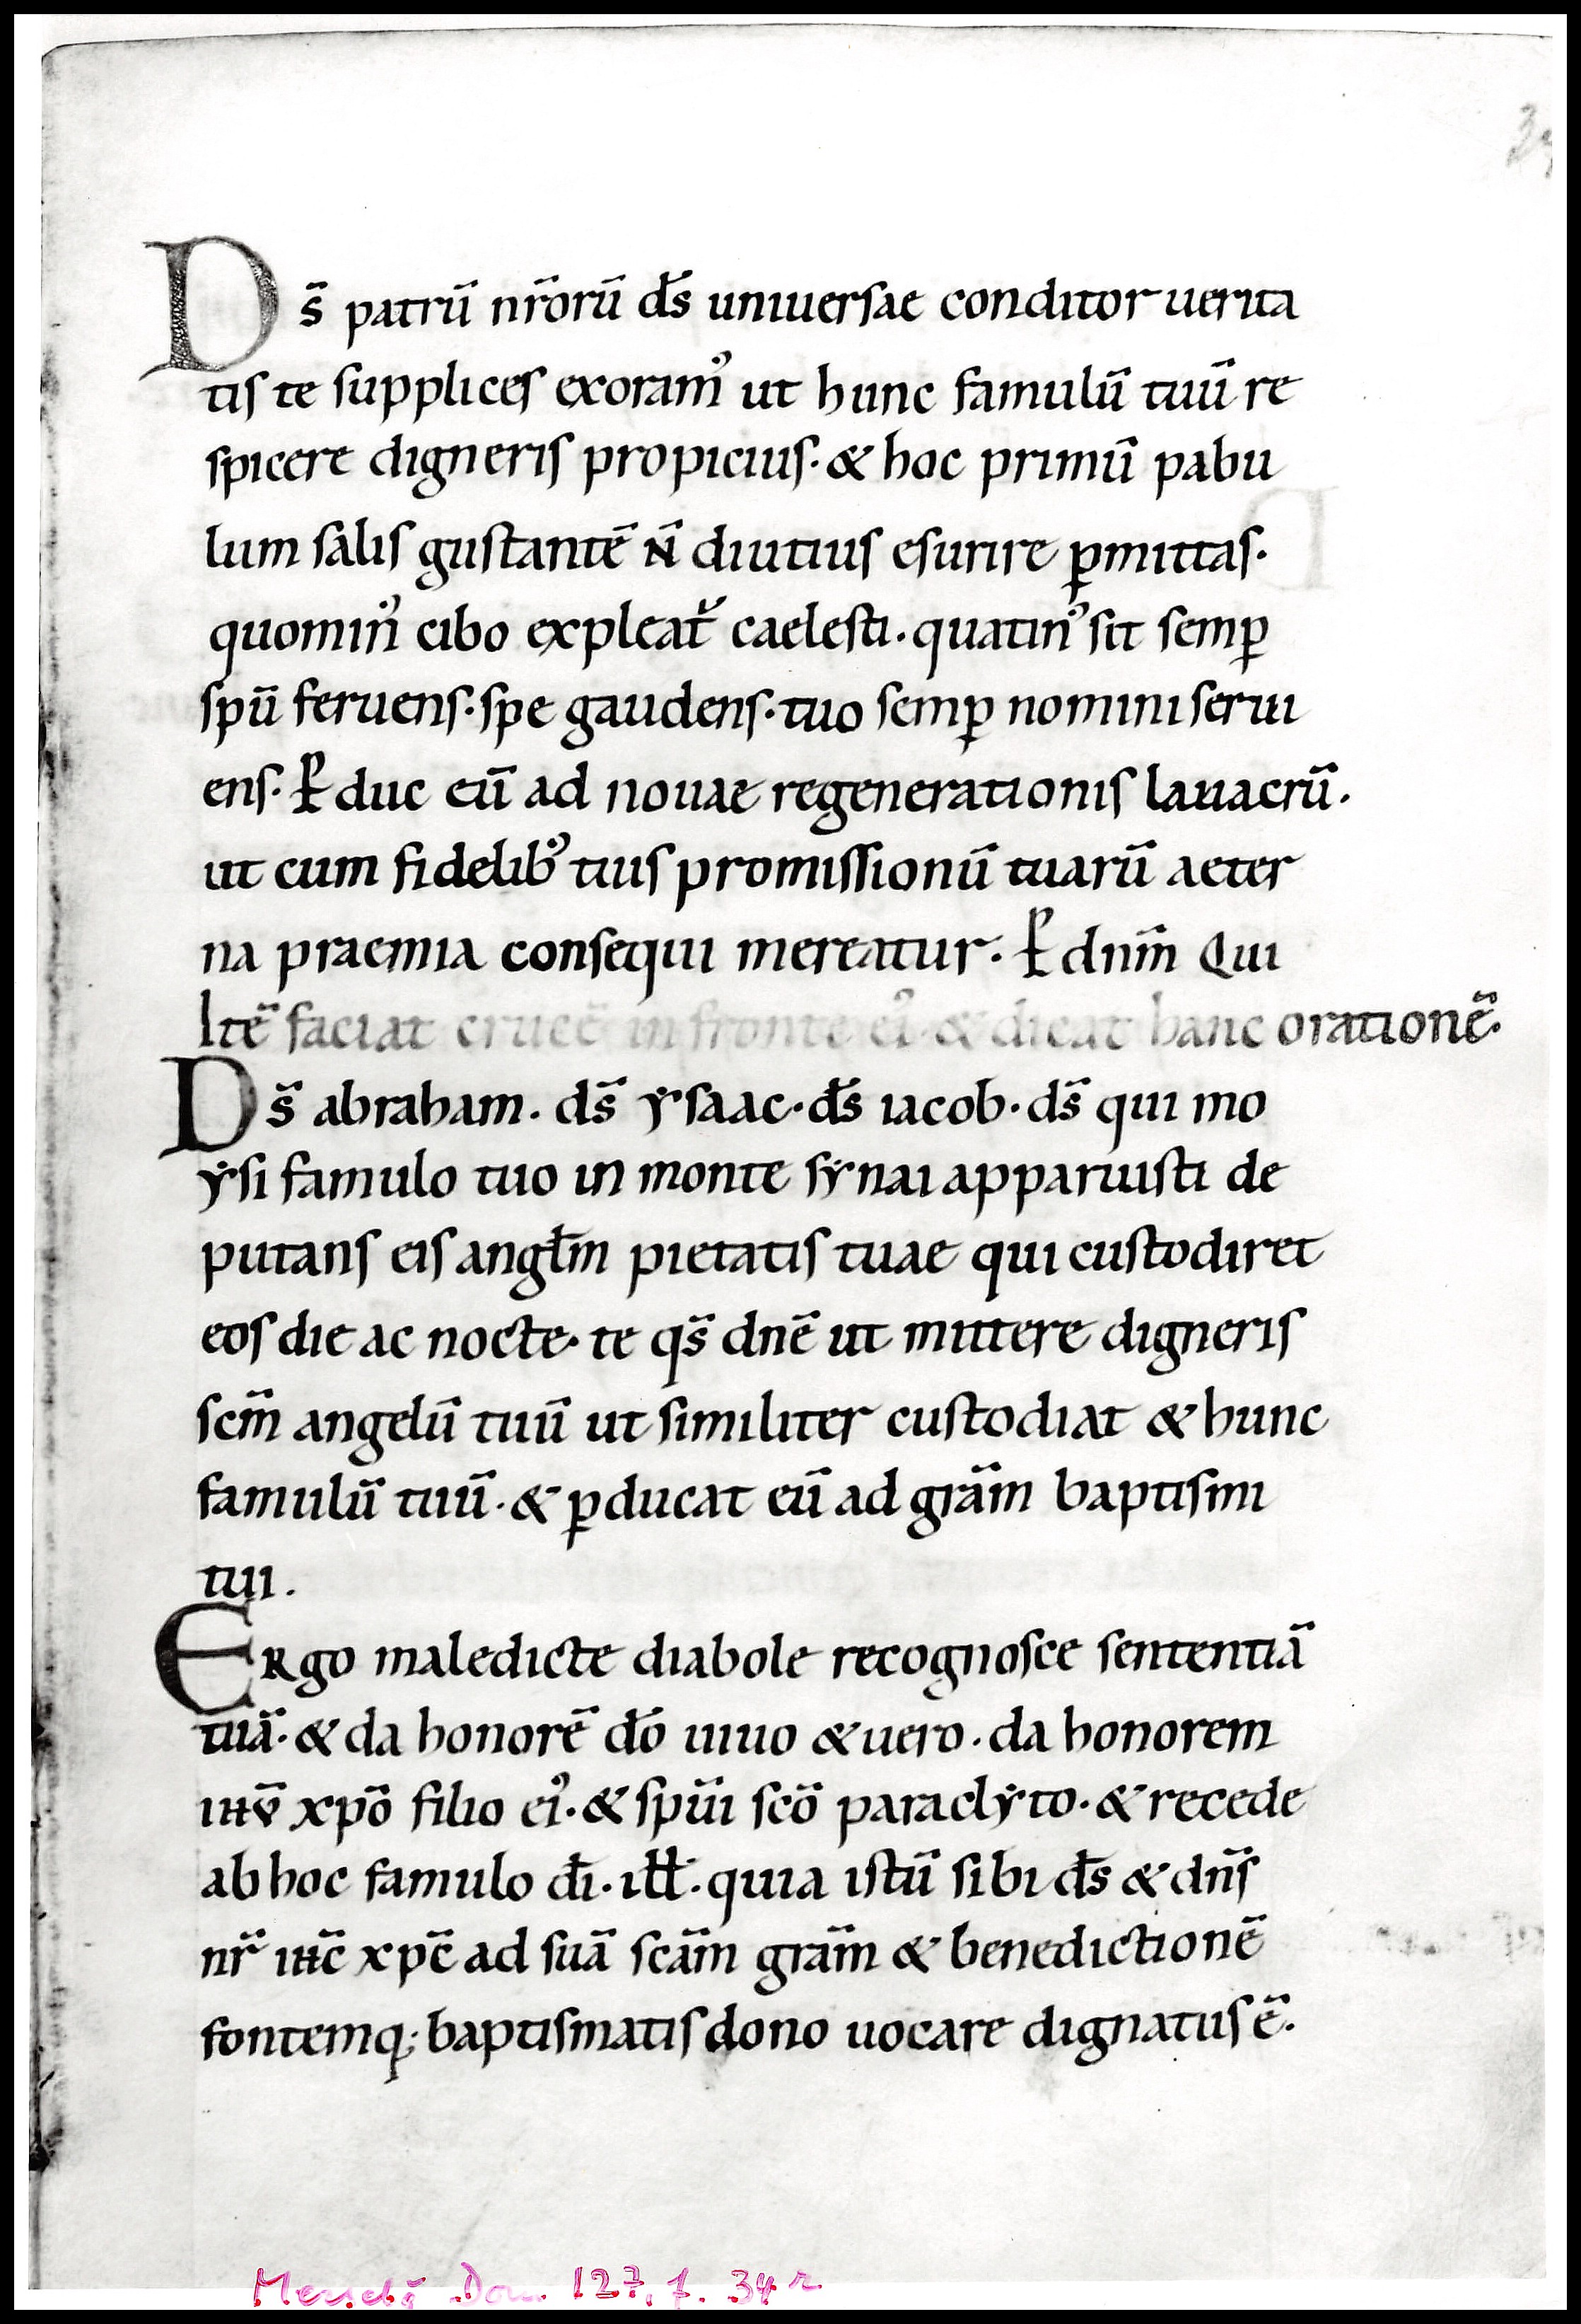 Ds̄ patrū nr̄orū ds̄ uniuersae conditor uerita
tis te supplices exoram᾽ ut hunc famulū tuū re
spicere digneris propicius· & hoc primū pabu
lum salis gustantē N̄ diutius esurire ꝑmittas·
quomin᾽ cibo expleat̄ caelesti· quatin᾽ sit semꝑ
spū feruens· spe gaudens· tuo semꝑ nomini serui
ens· Ꝑduc eū ad nouae regenerationis lauacrū·
ut cum fidelib᾽ tuis promissionū tuarū aeter
na praemia consequi mereatur· Ꝑ dnm̄ Qui
Itē faciat crucē in fronte ei᾽ & dicat hanc orationē·
Ds̄ abraham· ds̄ ẏsaac· ds̄ iacob· ds̄ qui mo
ẏsi famulo tuo in monte sẏnai apparuisti de
putans eis angłm pietatis tuae qui custodiret
eos die ac nocte· te qs̄ dnē ut mittere digneris
scm̄ angelū tuū ut similiter custodiat & hunc
famulū tuū· & ꝑducat eū ad grām baptismi
tui·
ERgo maledicte diabole recognosce sententiā
tuā· & da honorē dō uiuo & uero· da honorem
ihū xpō filio ei᾽· & spūi scō paraclẏto· & recede
ab hoc famulo dī· iłł· quia istū sibi ds̄ & dn̄s
nr̄ ihc̄ xpc̄ ad suā scām grām & benedictionē
fontemq; baptismatis dono uocare dignatus ē·
127, f. 34 r